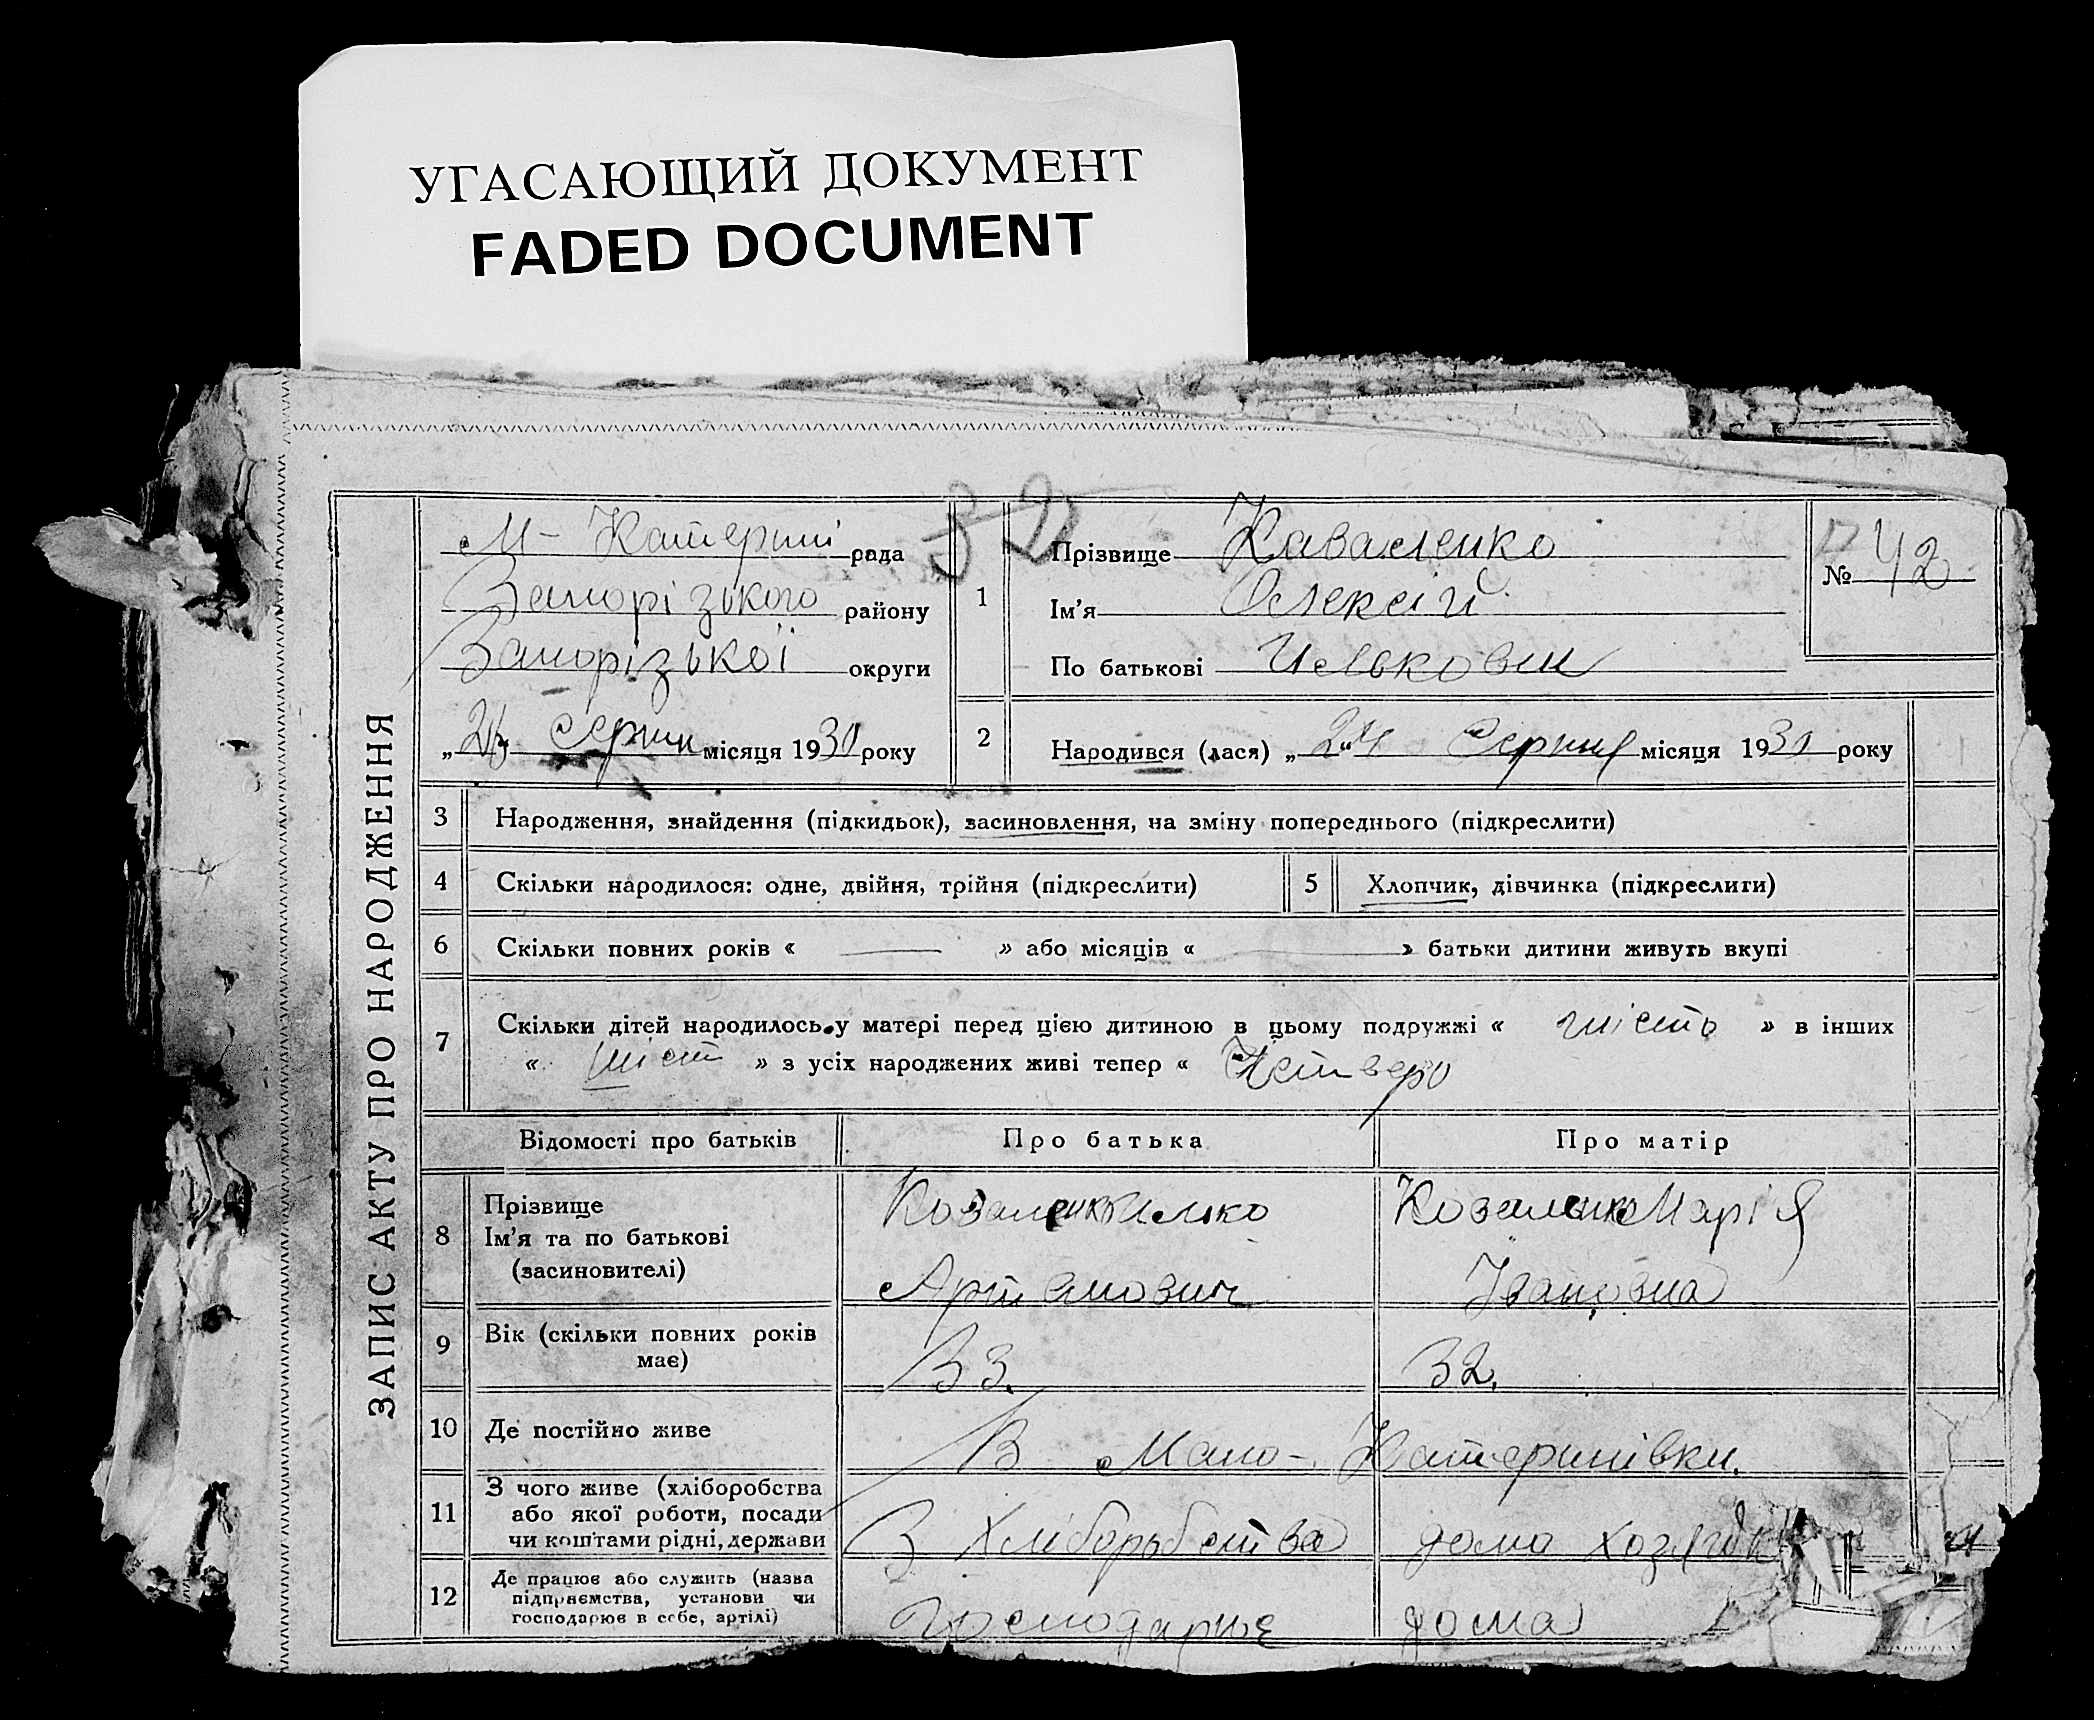 УГАСАЮЩИЙ ДОКУМЕНТ
FADED DOCUMENT
ЗАПИС АКТУ ПРО НАРОДЖЕННЯ
М- Катерин рада
Запорізького району
Запорізької округи
„ серпня місяця 1930 року
32
1
Прізвище Каваленко
Ім'я Олексій
По батькові Ильковы
№ 42
2
Народився (лася) „24 Серпня місяця 1930 року
3 Народження, знайдення (підкидьок), засиновлення, на зміну попереднього (підкреслити)
4 Скільки народилося: одне, двійня, трійня (підкреслити)
5 Хлопчик, дівчинка (підкреслити)
6 Скільки повних років « » або місяців « » батьки дитини живуть вкупі
7 Скільки дітей народилось у матері перед цією дитиною в цьому подружжі « шість » в інших
« шіст » з усіх народжених живі тепер « Четверо
Відомості про батьків Про батька Про матір
8 Прізвище
Ім'я та по батькові
(засиновителі)
Коваленко Илько
Артемович
Коваленко Марія
Івановна
9 Вік (скільки повних років
має)
33. 32.
10 Де постійно живе В Мало-Катеринівки.
11 З чого живе (хліборобства
або якої роботи, посади
чи коштами рідні, держави
З Хліборобства дома хозяйк
12 Де працює або служить (назва
підприємства, установи чи
господарює в себе, артілі)
господарює дома